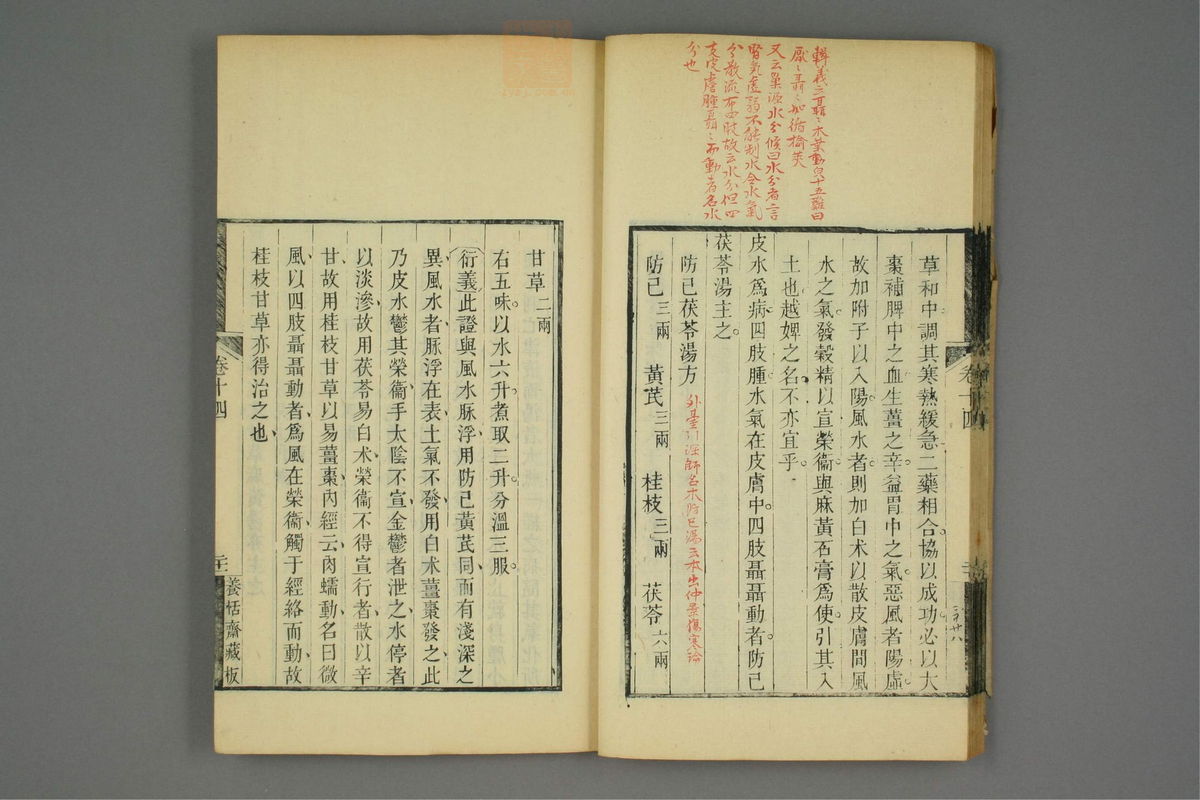 輯義云聶聶木葉動皃十五難曰
厭厭聶聶如循榆莢
又云巢源水分候曰水分者言
腎氣虛弱不能制水令水氣
分散流布四肢故云水分但四
支皮膚腫聶聶而動者名水
分也
草和中調其寒熱緩急二藥相合協以成功必以大
棗補脾中之血生薑之辛益胃中之氣惡風者陽虛
故加附子以入陽風水者則加白朮以散皮膚間風
水之氣發穀精以宣榮衞與麻黃石膏爲使引其入
土也越婢之名不亦宜乎
皮水爲病四肢腫水氣在皮膚中四肢聶聶動者防己
茯苓湯主之
防已茯苓湯方
外臺引深師名木防已湯云本出仲景傷寒論
防己三兩 黃芪三兩 桂枝三兩 茯苓六兩
卷十四
甘草二兩
右五味以水六升煮取二升分溫三服
衍義此證與風水脉浮用防己黃芪同而有淺深之
異風水者脉浮在表土氣不發用白朮薑棗發之此
乃皮水鬱其榮衞手太陰不宣金鬱者泄之水停者
以淡滲故用茯苓易白朮榮衞不得宣行者散以辛
甘故用桂枝甘草以易薑棗內經云肉蠕動名曰微
風以四肢聶聶動者爲風在榮衞觸于經絡而動故
桂枝甘草亦得治之也
卷十四
養恬齋藏板